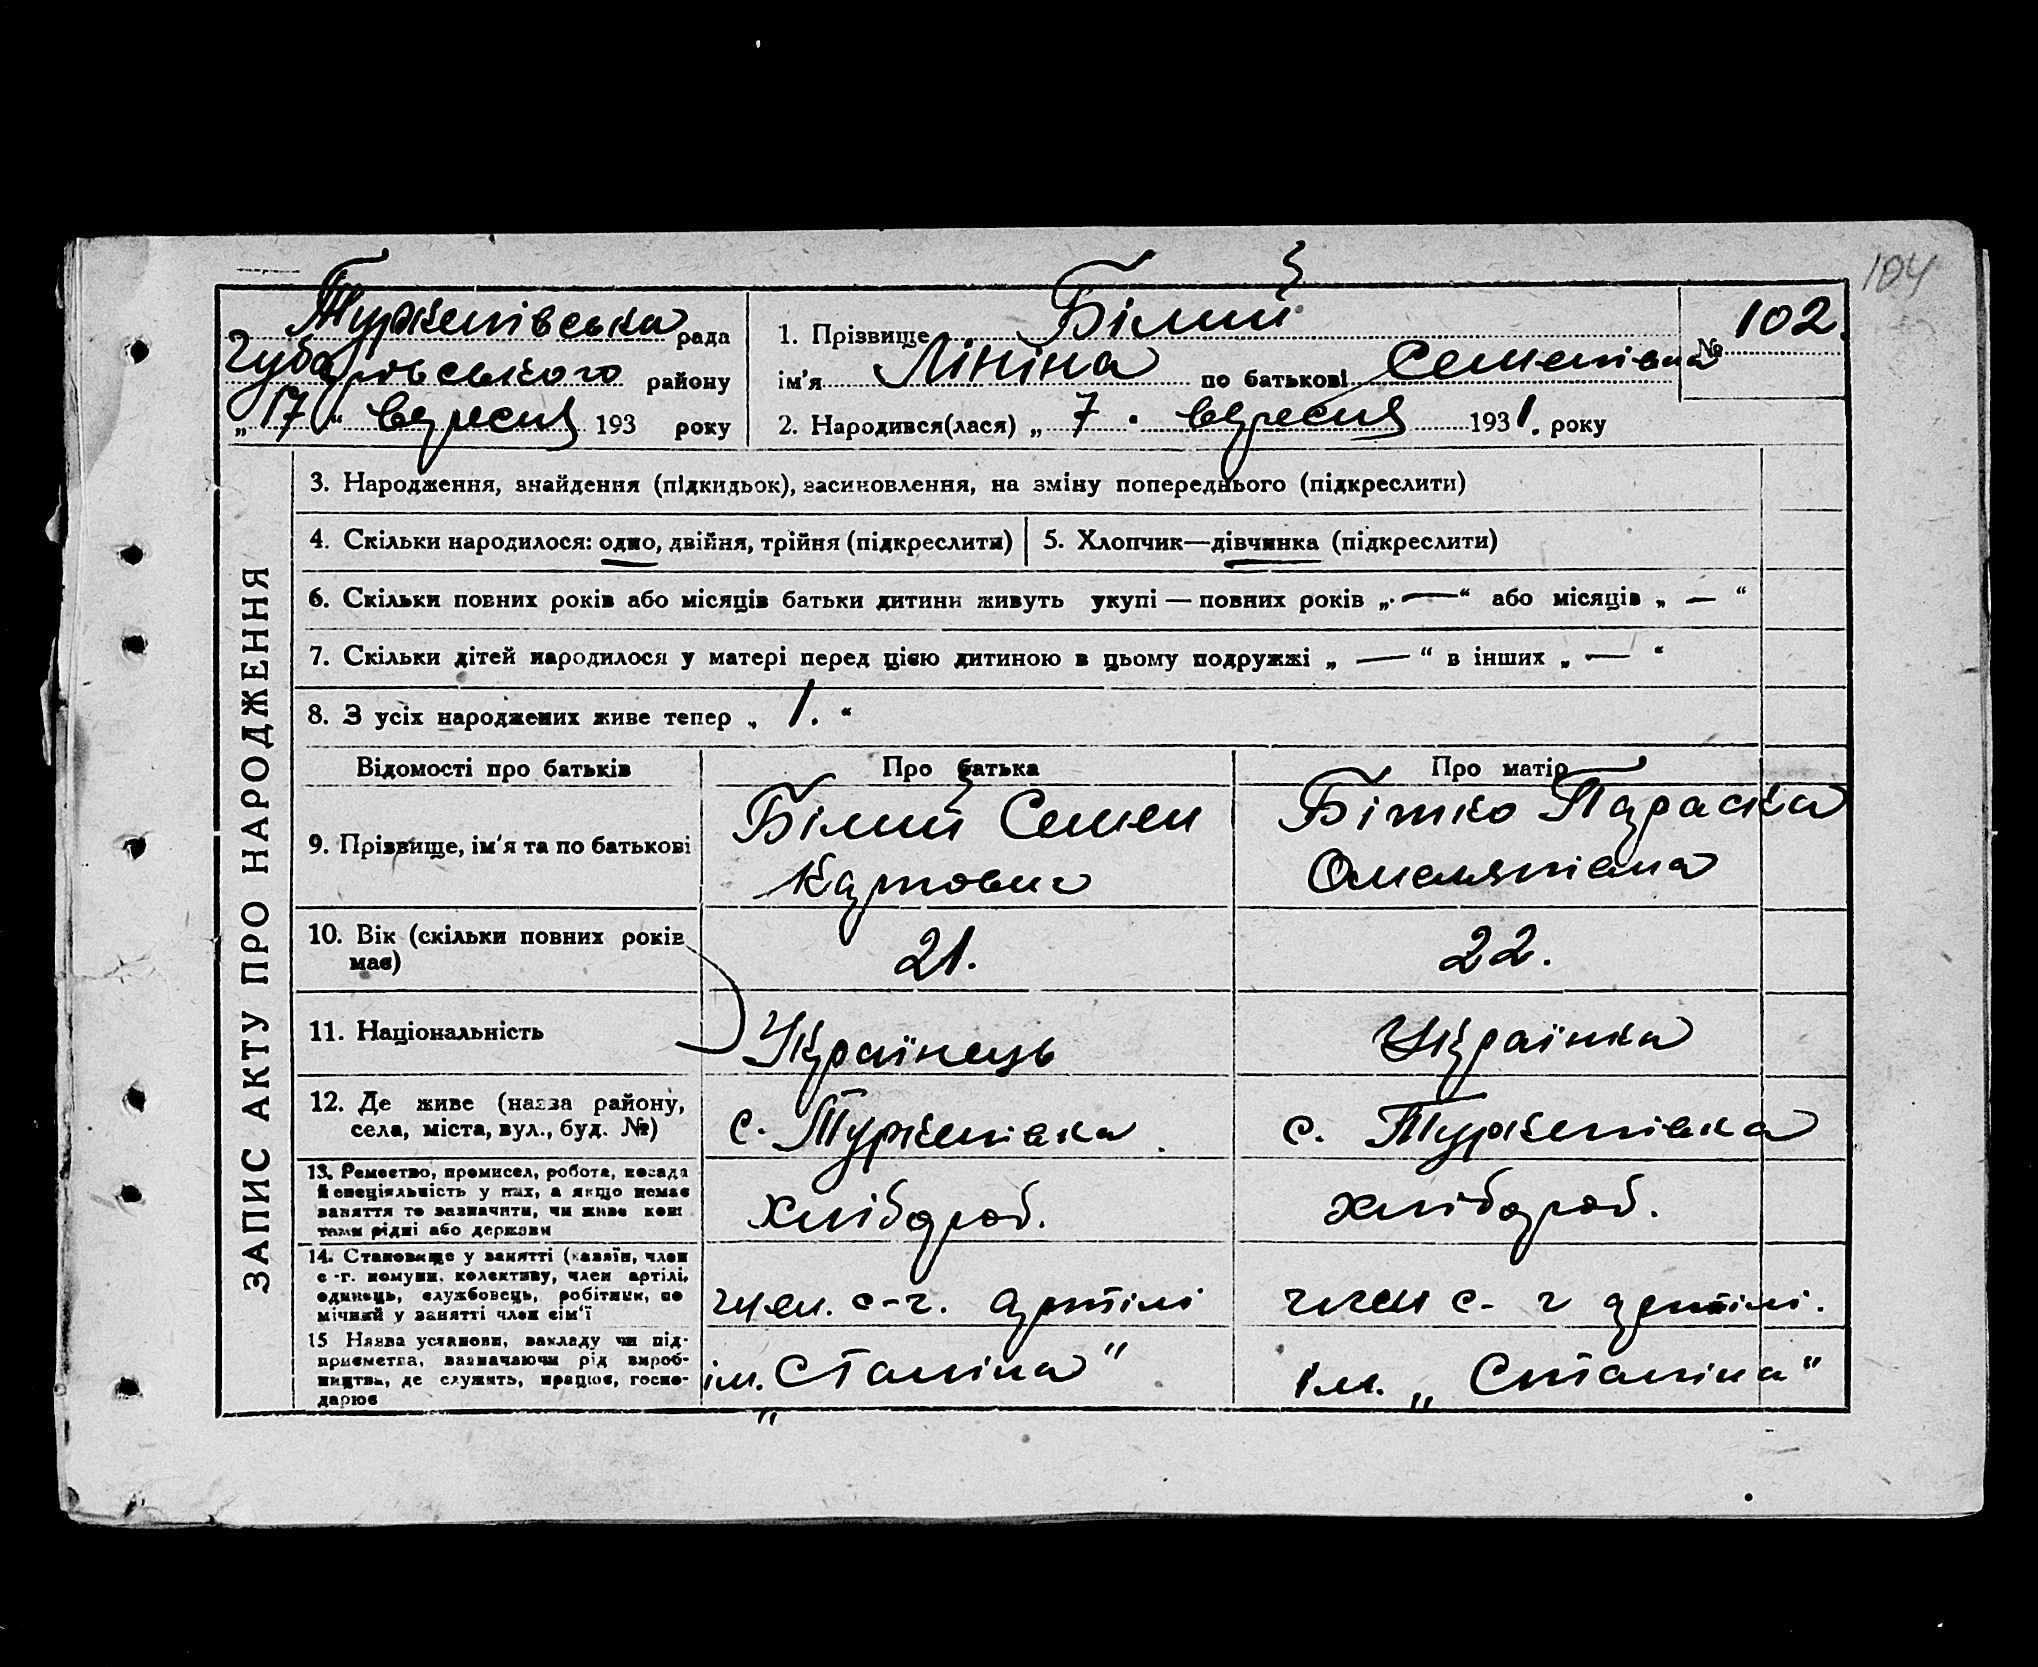 104
Турженівська рада
Чубарівського району
„17“ вересня 193 року
1. Прізвище Білий
ім'я Лініна по батькові Семенівна
№ 102.
2. Народився(лася) „ 7 . вересня 1931. року
ЗАПИС АКТУ ПРО НАРОДЖЕННЯ
3. Народження, знайдення (підкидьок), засиновлення, на зміну попереднього (підкреслити)
4. Скільки народилося: одно, двійня, трійня (підкреслити) 5. Хлопчик—дівчинка (підкреслити)
6. Скільки повних років або місяців батьки дитини живуть укупі — повних років „ — “ або місяців „ — “
7. Скільки дітей народилося у матері перед цією дитиною в цьому подружжі „ — “ в інших „ — “
8. З усіх народжених живе тепер „ 1. “
Відомості про батьків Про батька Про матір
9. Прізвище, ім'я та по батькові
Білий Семен
Карпович
Бітко Параска
Омелянівна
10. Вік (скільки повних років
має)
21.
22.
11. Національність
Українець
Українка
12. Де живе (назва району,
села, міста, вул., буд. №)
с. Турженівка
с. Турженівка
13. Ремество, промисел, робота, посада
й спеціяльність у них, а якщо немає
заняття то зазначити, чи живе кош
тами рідні або держави
хлібороб.
хлібороб.
14. Становище у занятті (хазяїн, член
с-г. комуни, колективу, член артілі,
одинець, службовець, робітник, по
мічний у занятті член сім'ї
член. с-г. артілі
член с-г артілі.
15 Назва установи, закладу чи під-
приємства, зазначаючи рід вироб-
ництва, де служить, працює, госпо-
дарює
ім. „Сталіна“
ім. „Сталіна“